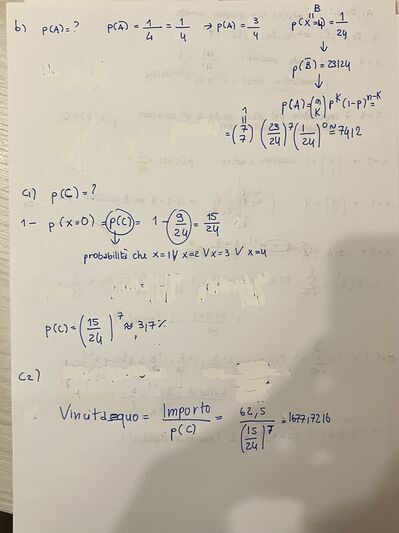 b) p(A)=? p(Ā) = 1/4 = 1/4 → p(A) = 3/4
B
p(x=4) = 1/24
↓
p(B̄) = 23/24
↓
p(A) = (n K) p^K (1-p)^n-K =
1
= (7 7) (23/24)^7 (1/24)^0 ≅ 74,2
C1) p(C)=?
1- p(x=0) = p(C) = 1 - 9/24 = 15/24
↓
probabilità che x=1 V x=2 V x=3 V x=4
p(C) = (15/24)^7 ≈ 3,7%
C2)
Vincita equo = Importo/p(C) = 62,5/(15/24)^7 = 1677,7216